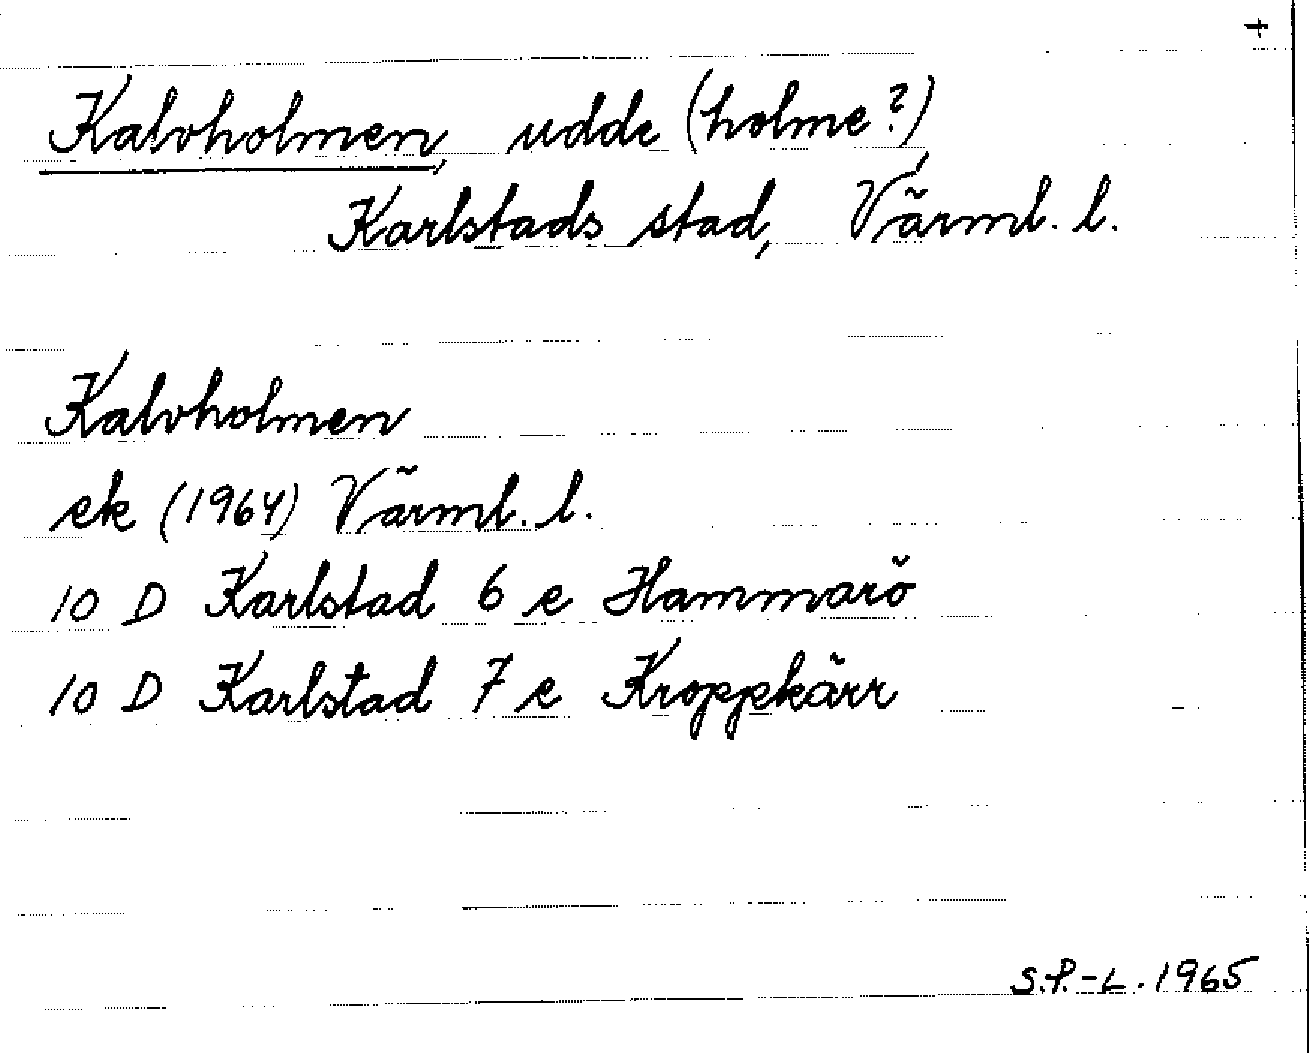 +
Kalvholmen, udde (holme?),
Karlstads stad, Värml. l.
Kalvholmen
ek (1964) Värml. l.
10 D Karlstad 6 e Hammarö
10 D Karlstad 7 e Kroppkärr
S.P.-L. 1965